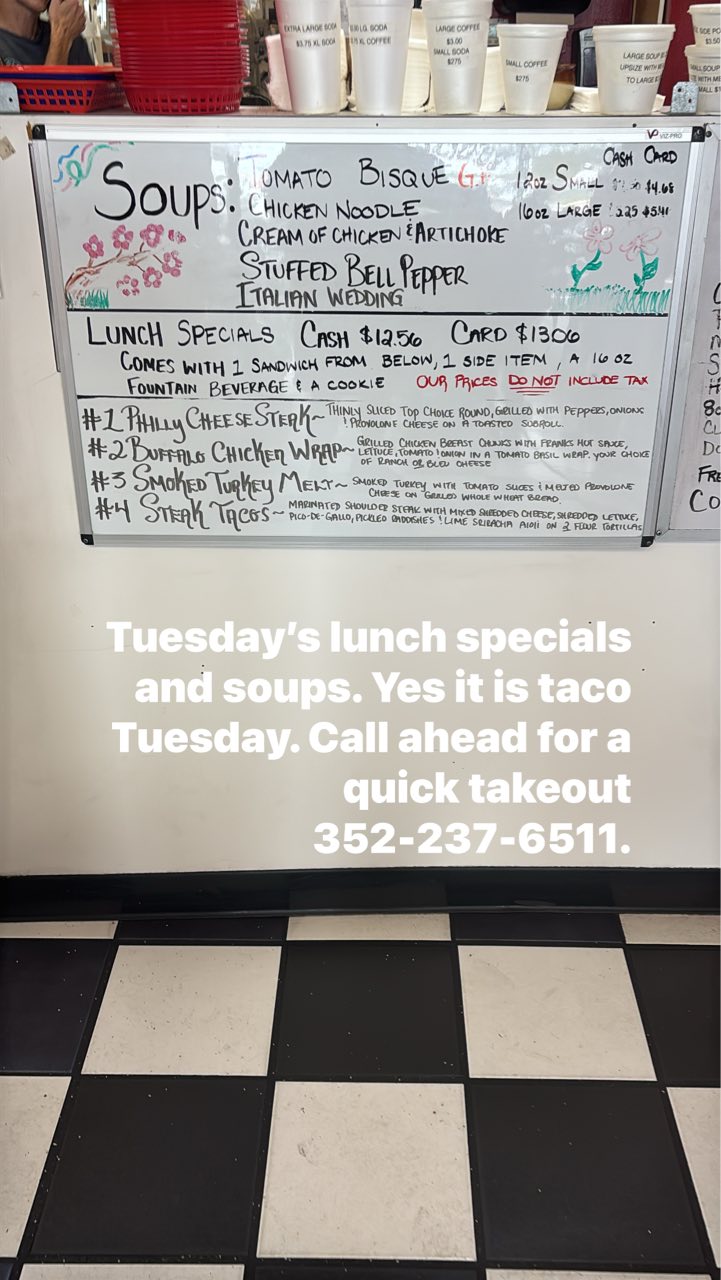 EXTRA LARGE SODA
$3.75 XL SODA
LARGE COFFEE
$3.00
SMALL SODA
$275
SMALL COFFEE
$275
LARGE SOUP
UPSIZE WITH
TO LARGE
VIZ-PRO
CASH CARD
SOUPS: TOMATO BISQUE
12OZ SMALL $4.68
CHICKEN NOODLE
16OZ LARGE $5.41
CREAM OF CHICKEN & ARTICHOKE
STUFFED BELL PEPPER
ITALIAN WEDDING
LUNCH SPECIALS CASH $12.56 CARD $1306
COMES WITH 1 SANDWICH FROM BELOW, 1 SIDE ITEM, A 16 OZ
FOUNTAIN BEVERAGE & A COOKIE OUR PRICES DO NOT INCLUDE TAX
#1 PHILLY CHEESE STEAK~ THINLY SLICED TOP CHOICE ROUND, GRILLED WITH PEPPERS, ONIONS
& PROVOLONE CHEESE ON A TOASTED SUBROLL.
#2 BUFFALO CHICKEN WRAP~ GRILLED CHICKEN BREAST CHUNKS WITH FRANKS HOT SAUCE,
LETTUCE, TOMATO & ONION IN A TOMATO BASIL WRAP. YOUR CHOICE
OF RANCH OR BLEU CHEESE
#3 SMOKED TURKEY MELT~ SMOKED TURKEY WITH TOMATO SLICES & MELTED PROVOLONE
CHEESE ON GRILLED WHOLE WHEAT BREAD.
#4 STEAK TACOS~ MARINATED SHOULDER STEAK WITH MIXED SHREDDED CHEESE, SHREDDED LETTUCE,
PICO-DE-GALLO, PICKLED RADDISHES & LIME SRIRACHA AIOLI ON 2 FLOUR TORTILLAS
Tuesday's lunch specials
and soups. Yes it is taco
Tuesday. Call ahead for a
quick takeout
352-237-6511.